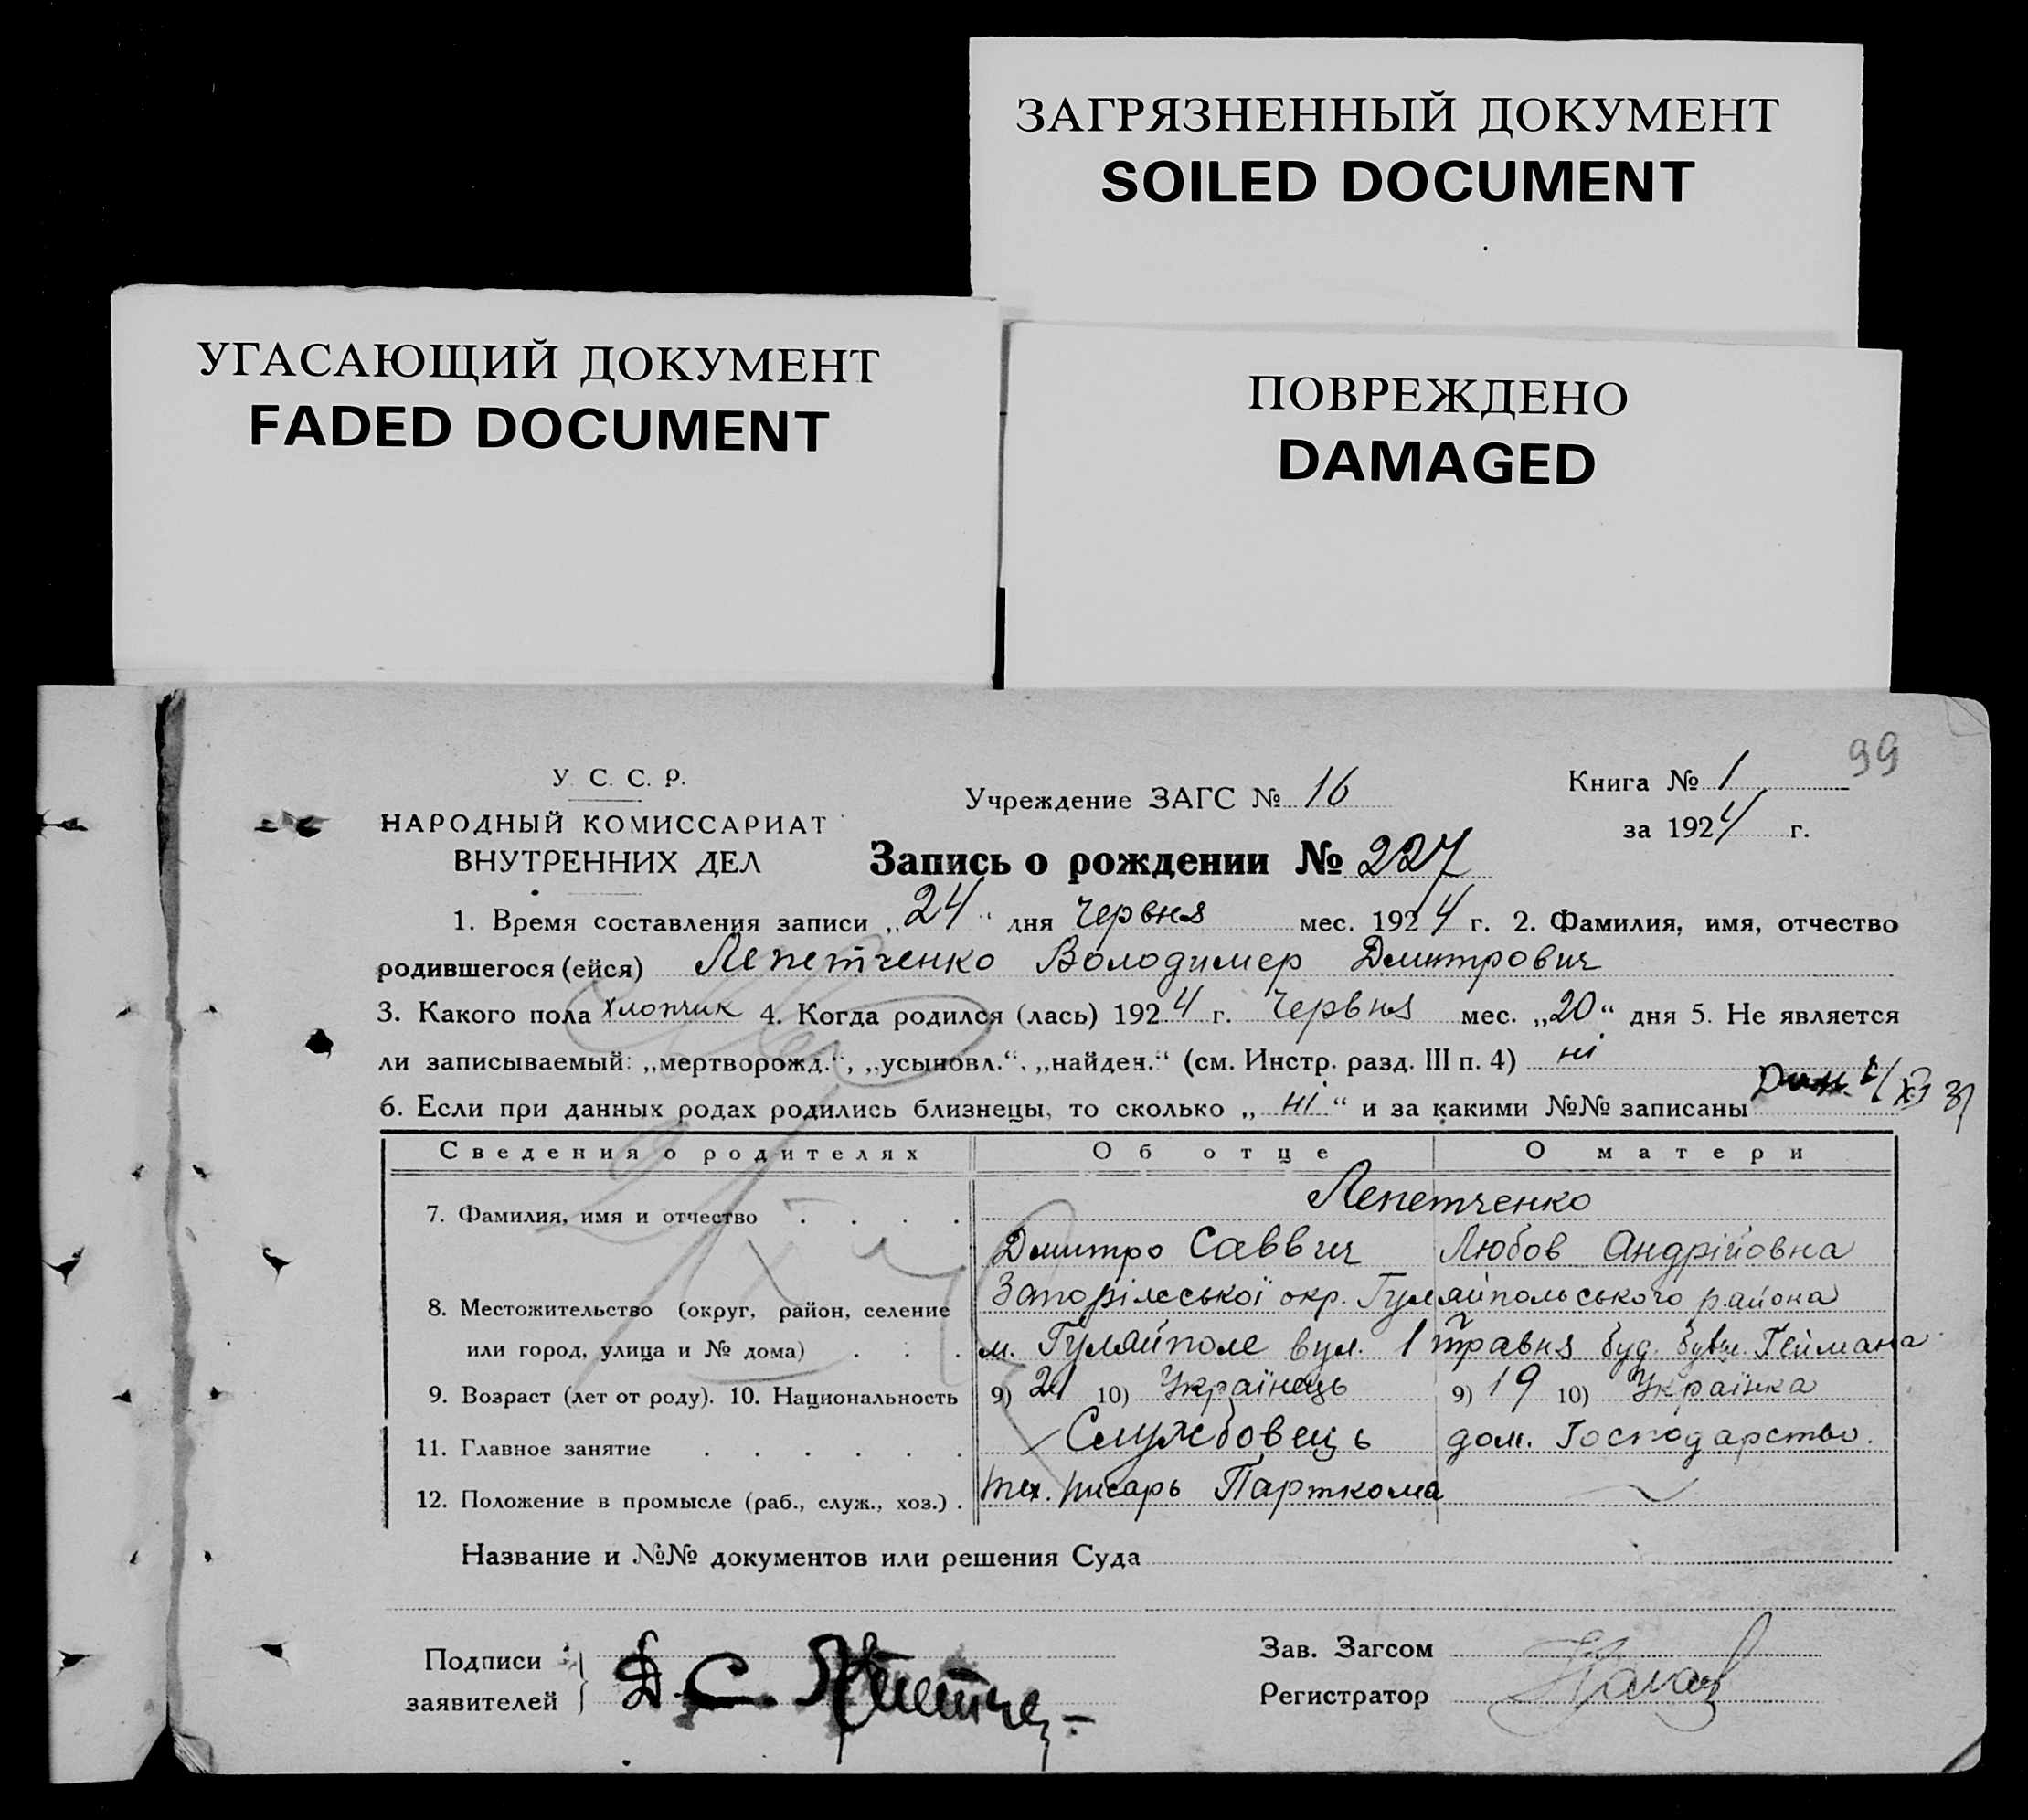 ЗАГРЯЗНЕННЫЙ ДОКУМЕНТ
SOILED DOCUMENT
УГАСАЮЩИЙ ДОКУМЕНТ
FADED DOCUMENT
ПОВРЕЖДЕНО
DAMAGED
99
У. С. С. Р.
НАРОДНЫЙ КОМИССАРИАТ
ВНУТРЕННИХ ДЕЛ
Учреждение ЗАГС № 16
Книга № 1
за 1924 г.
Запись о рождении № 227
1. Время составления записи „24“ дня червня мес. 1924 г. 2. Фамилия, имя, отчество
родившегося (ейся) Лепетченко Володимер Дмитрович
3. Какого пола хлопчик 4. Когда родился (лась) 1924 г. червня мес. „20“ дня 5. Не является
ли записываемый: „мертворожд.“, „усыновл.“, „найден.“ (см. Инстр. разд. III п. 4) ні
6. Если при данных родах родились близнецы, то сколько „ні“ и за какими №№ записаны
Сведения о родителях Об отце О матери
7. Фамилия, имя и отчество . . . . Лепетченко
Дмитро Саввич Любов Андрійовна
8. Местожительство (округ, район, селение Запоріжської окр. Гуляйпольського района
или город, улица и № дома) . . . м. Гуляйполе вул. 1 травня буд. бувш. Геймана
9. Возраст (лет от роду). 10. Национальность 9) 21 10) Українець 9) 19 10) Українка
11. Главное занятие . . . . . . Службовець дом. Господарство.
12. Положение в промысле (раб., служ., хоз.) . тех. писарь Парткома
Название и №№ документов или решения Суда
Подписи
заявителей
Д. С. Лепетчен-
Зав. Загсом
Регистратор